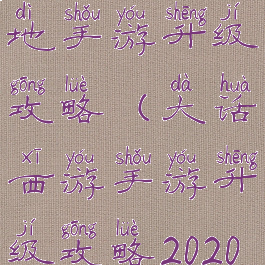 dì shǒu yóu shēng jí
地手游升级
gōng lüè dà huà
攻略(大话
xī yóu shǒu yóu shēng
西游手游升
jí gōng lüè
级攻略2020